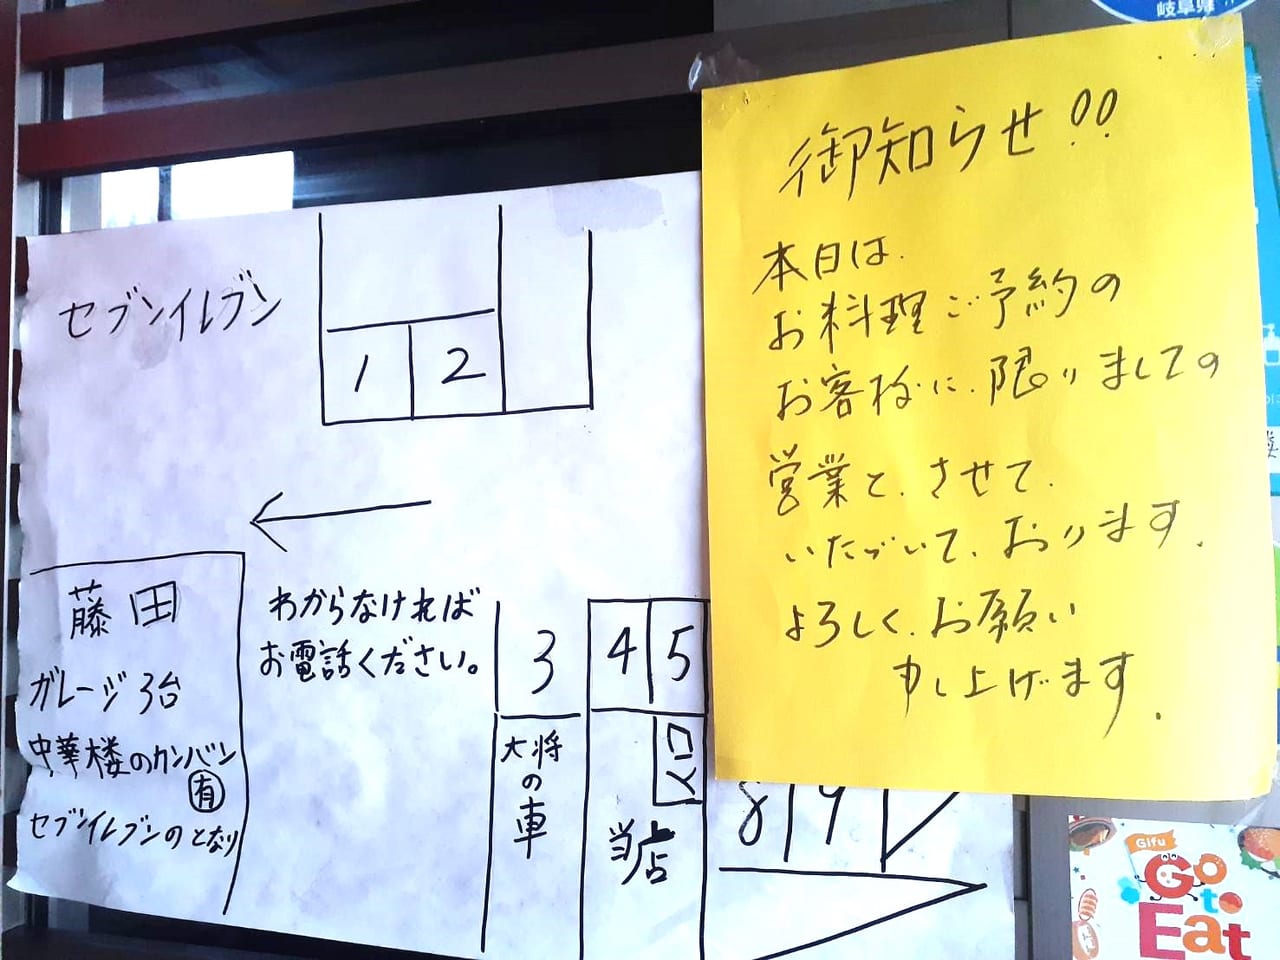 岐阜県
御知らせ!!
本日は.
お料理ご予約の
お客様に.限りましての
営業と.させて.
いただいて.おります.
よろしく.お願い
申し上げます.
セブンイレブン
1 2
藤田
ガレージ3台
中華楼のカンバン
有
セブンイレブンのとなり
わからなければ
お電話ください。
3 4 5
大将の車
入口
当店
8 9
Gifu
Go
to
Eat